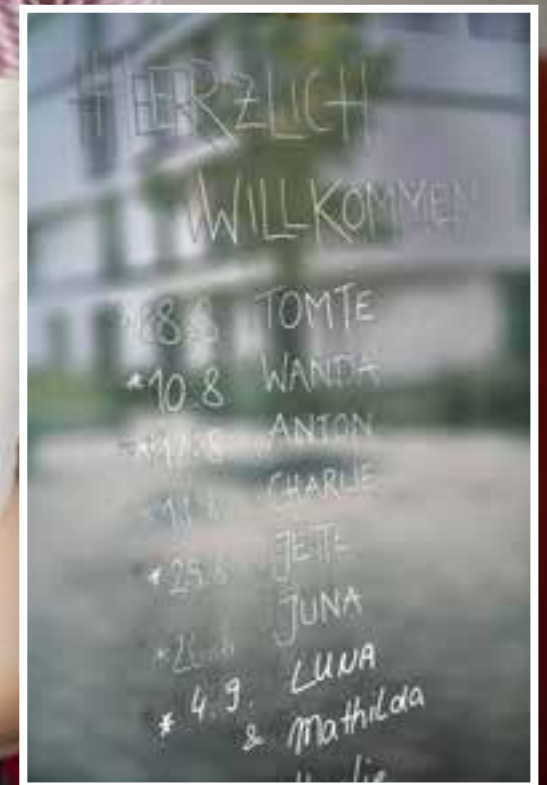 HERZLICH
WILLKOMMEN
TOMTE
*10.8 WANDA
ANTON
CHARLIE
JETTE
JUNA
* 4.9. LUNA
& Mathilda